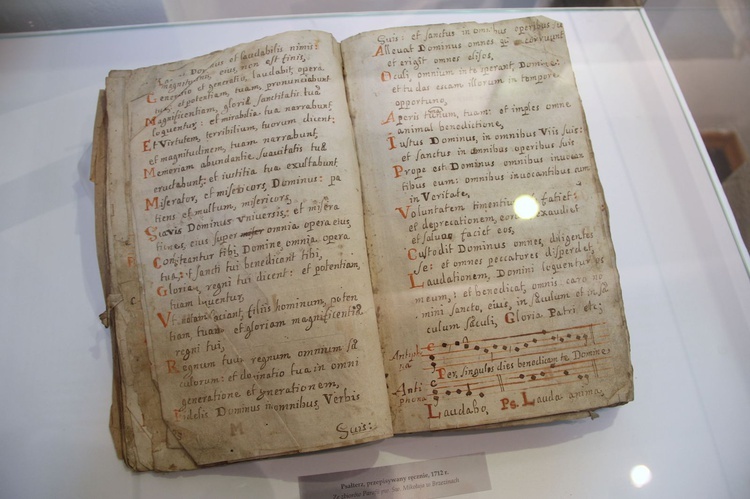 Dominus et laudabilis nimis:
magnitudinis eius, non est finis,
Generatio et generatio, laudabit, opera
tua, et potentiam, tuam, pronunciabunt
Magnificentiam, gloriæ sanctitatis tuæ
loquentur: et mirabilia tua narrabunt,
Et Virtutem, terribilium, tuorum dicent;
et magnitudinem, tuam narrabunt,
Memoriam abundantiæ suavitatis tuæ
eructabunt: et iustitia tua exultabunt
Miserator, et misericors, Dominus: pa
tiens et multum, misericors,
Suavis Dominus Vniversis: et misera
tiones, eius super omnia opera eius,
Confiteantur tibi, Domine, omnia, opera
tua: et sancti tui benedicant tibi,
Gloriam, regni tui dicent: et potentiam,
tuam loquentur,
Vt notam faciant, filiis hominum, poten
tiam, tuam, et gloriam magnificentiæ
regni tui,
Regnum tuum regnum omnium sæ
culorum: et dominatio tua in omni
generatione et generationem,
Fidelis Dominus in omnibus, Verbis
Suis:
Suis: et sanctus in omnibus operibus
Allevat Dominus omnes qui corruunt
et erigit omnes elisos,
Oculi, omnium in te sperant, Domine:
et tu das escam illorum in tempore
opportuno,
Aperis tu manum, tuam: et imples omne
animal benedictione,
Iustus Dominus, in omnibus Viis suis:
et sanctus in omnibus operibus suis
Prope est Dominus omnibus invocan
tibus eum: omnibus invocantibus eum
in Veritate,
Voluntatem timentium faciet:
et deprecationem, eorum exaudiet
et salvos faciet eos,
Custodit Dominus omnes, diligentes
se: et omnes peccatores disperdet,
Laudationem, Domini loquetur os
meum,: et benedicat, omnis caro no
mini sancto, eius, in sæculum et in sæ
culum sæculi, Gloria Patri etc;
Antipho
na
Per singulos dies benedicam te Domine,
Anti
phona
Laudabo, Ps. Lauda anima,
Psałterz, przepisywany ręcznie, 1712 r.